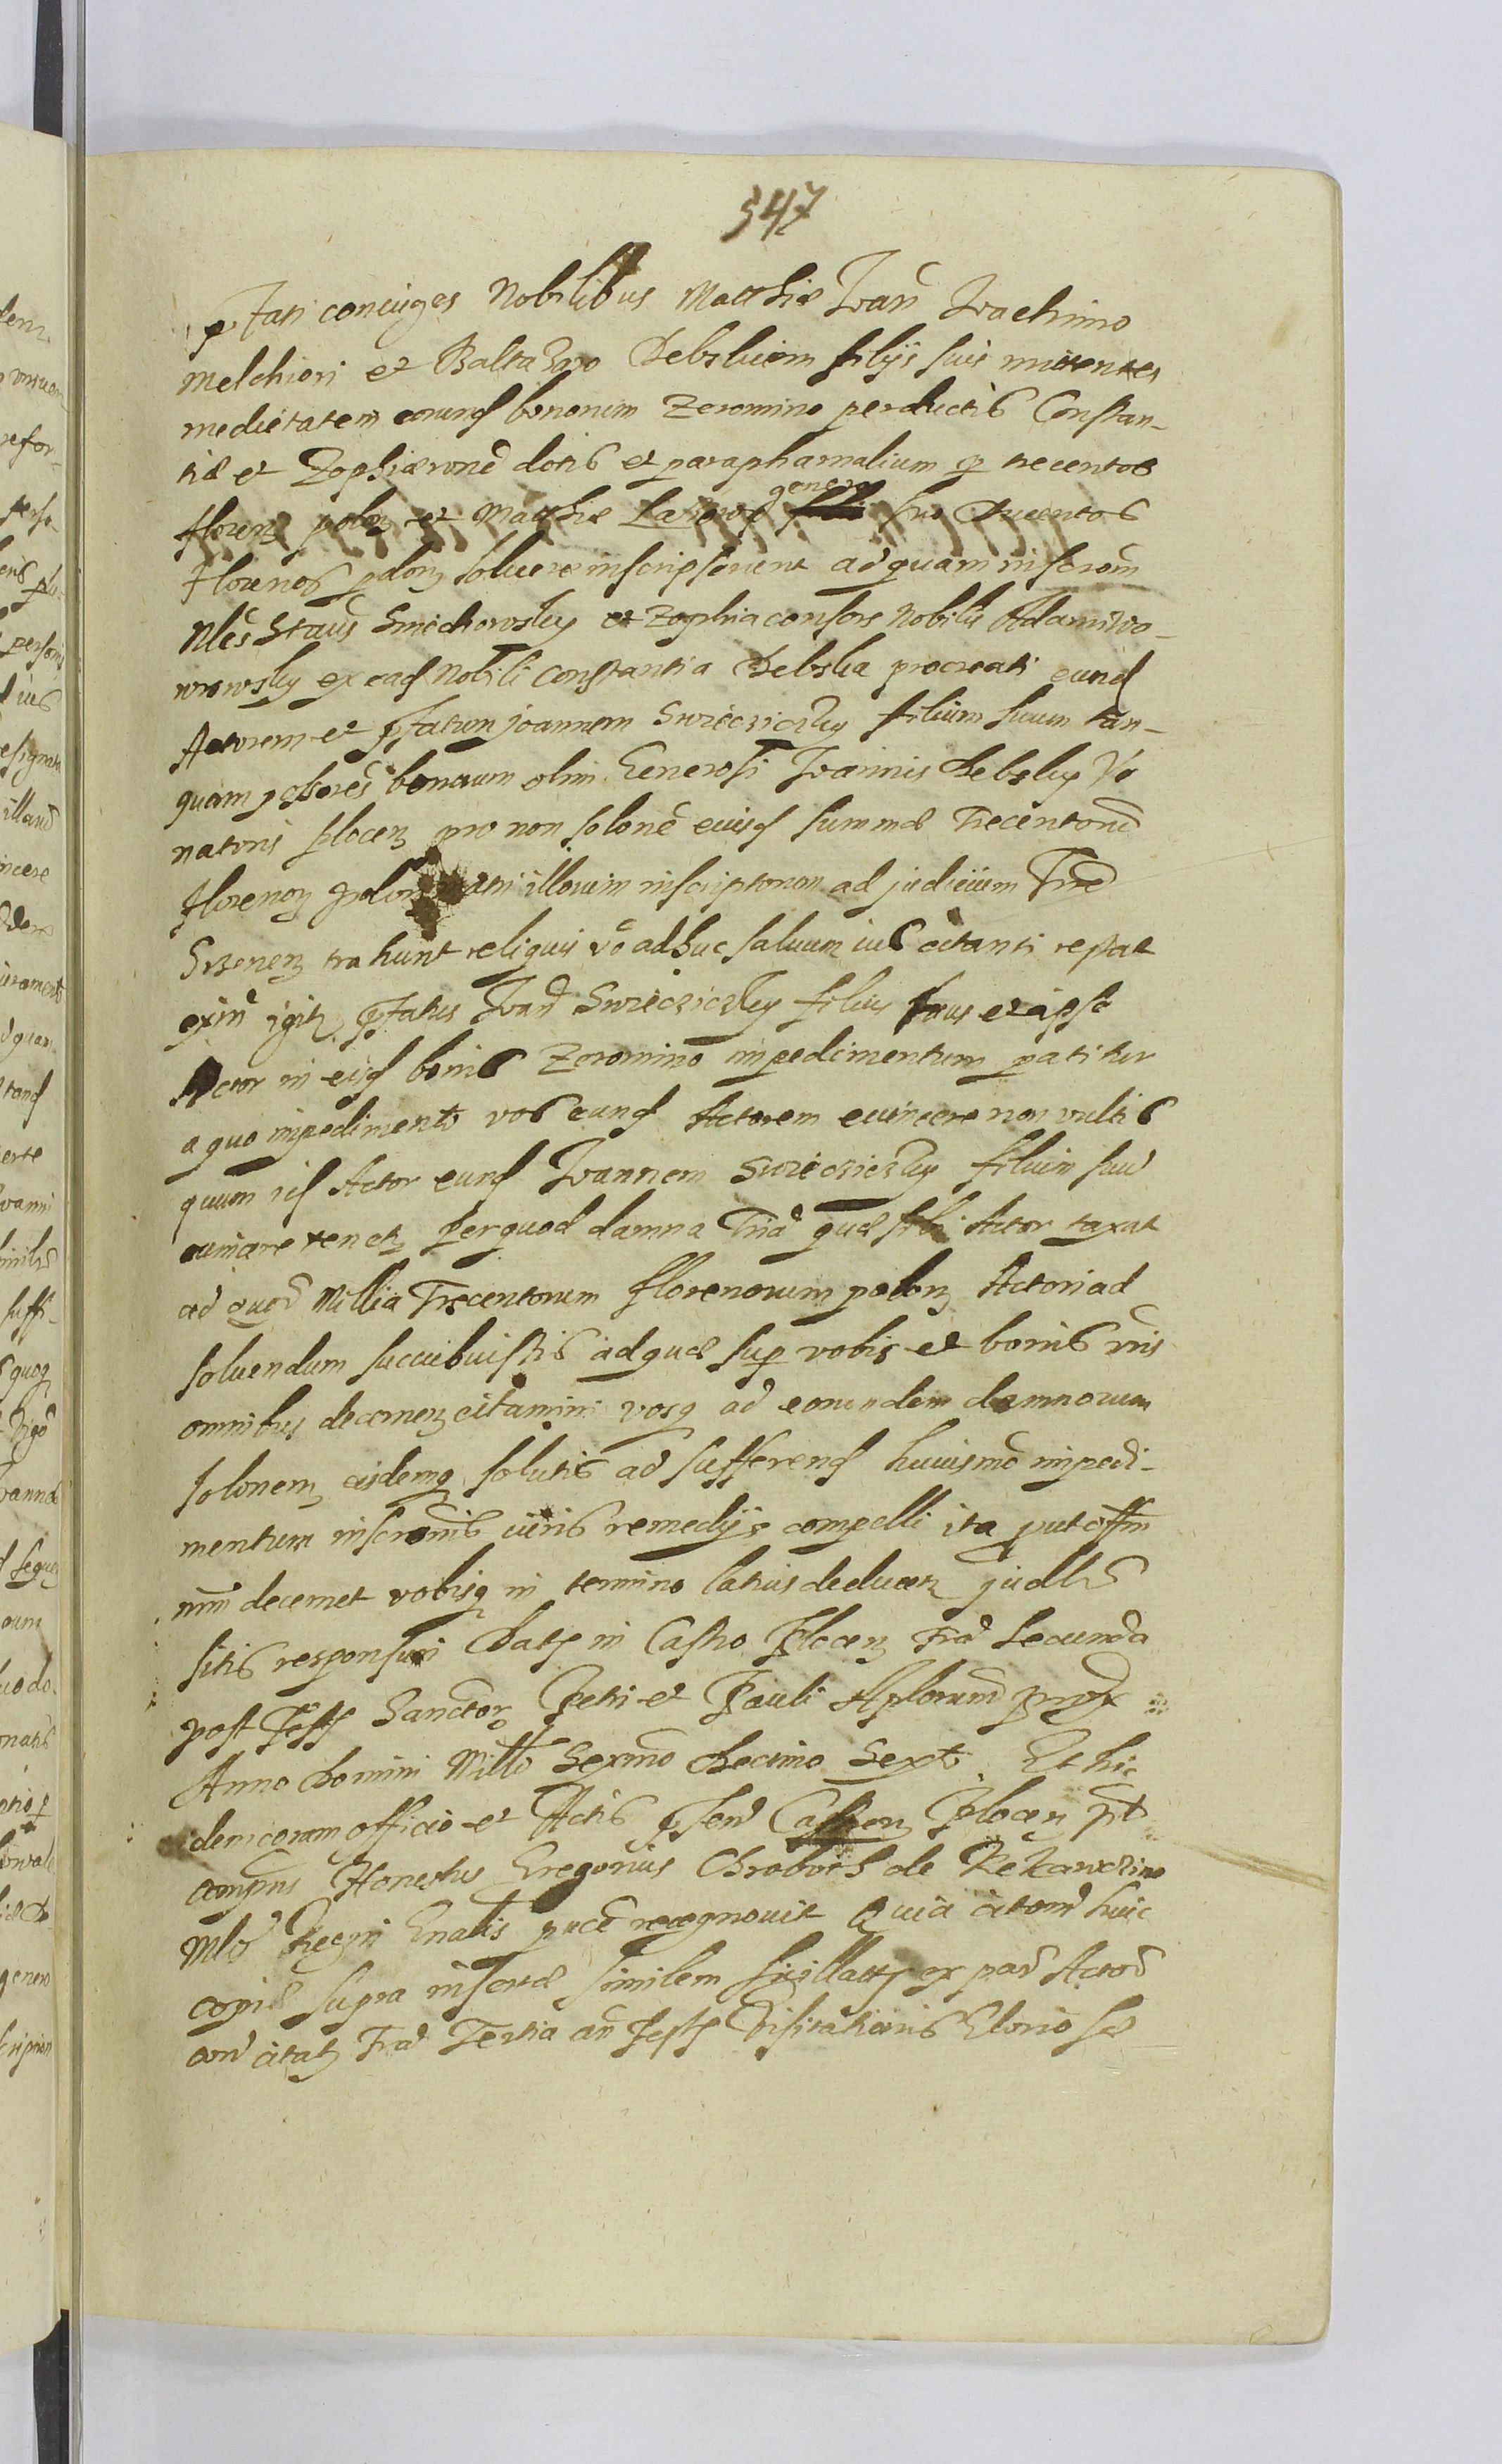 547
pfati coniuges Nobilibus Matthiæ Ioañ Ioachimo
Melchiori et Baltazaro Debskiem filijs suis mitentes
medietatem eorund bonorum Zeromino perductis Constan-
tiæ et Zophiæ rone dotis et paraphernalium p trecentos
floren polon et Matthiæ genero suo Ducentos
Florenos polon soluere inscripserunt ad quam inscrom
Nles Staus Smichowsky et Zophia consors Nobilis Adami Wo-
wrowsky ex ead Nobili Constantia Debska procreati eund
Actorem et pfatum Joannem Swiecziczky filium suum tan-
quam pssores bonorum olim Generosi Ioannis Debsky Ve
natoris plocen pro non solone eiusd summæ Trecentoru
Florenor polon matri illorum inscriptoron ad judicium Trre
Srzenen trahunt reliquis vo adhuc saluum ius actanti restat
exin igitr pfatus Ioan Swiecziczky filius suus et ipse
Actor in eisd bonis Zeromino impedimentum patitur
a quo impedimento vos eund Actorem euincere non vultis
quum is Actor eund Ioannem Swiecziczky filium suu
euincere tenetr Per quod damna Tria quæ sibi Actor taxat
ad quod Millia Trecentorum florenorum polon Actori ad
soluendum succubuistis ad quæ sup vobis et bonis vris
omnibus decernen citamini vosq ad eorundem damnorum
solonem eisdemq solutis ad sufferend huiusmo impedi-
mentum inscronis iuris remedijs compelli ita put offm
nrm decernet vobisq in termino latius deducetr judlr
sitis responsuri Datt in Castro Plocen fria secunda
post Festt Sanctor Petri et Pauli Aplorum prox
Anno Domini Millo Sexmo Decimo Sexto. Et hic
dem coram officio et Actis psen Castren Plocen pt
compns Honestus Gregorius Chroboth de Rekawczino
Mlis Regni Gnalis pnce recognouit Quia citaom huic
copiæ supra insertæ similem sigillattz ex parte Actor
con citat fria Tertia an Festt Visitationis Glorio sæ